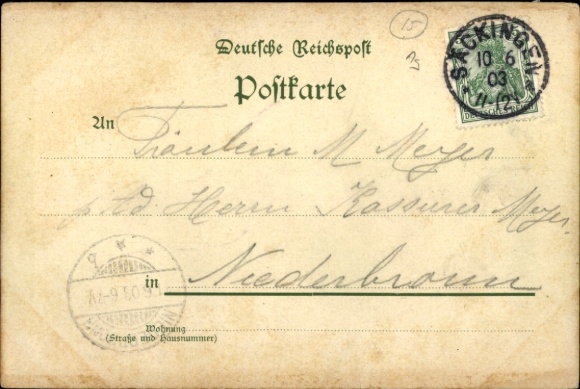 15
Deutsche Reichspost
Postkarte
SÄCKINGEN
10 6
03
11-12V
DEUTSCHES REICH
An
Fräulein M Meyer
p. Ad. Herrn Kassierer Meyer
in Niederbronn
6.03 6-7V
Wohnung
(Straße und Hausnummer)